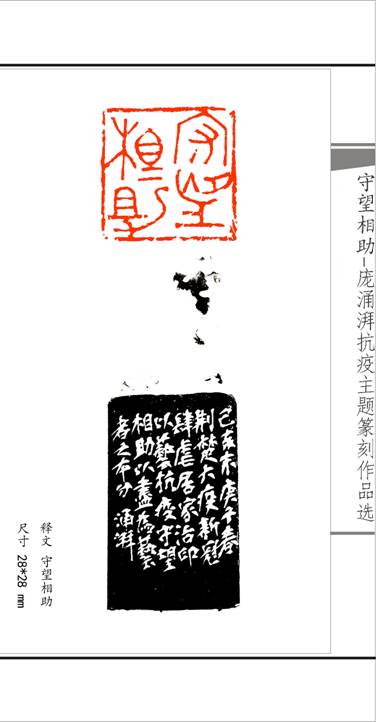 守望相助-庞涌湃抗疫主题篆刻作品选
守望
相助
己亥末庚子春
荆楚大疫新冠
肆虐居家治印
以藝抗疫守望
相助以盡為藝
者之本分 涌湃
释文 守望相助
尺寸 28*28 mm